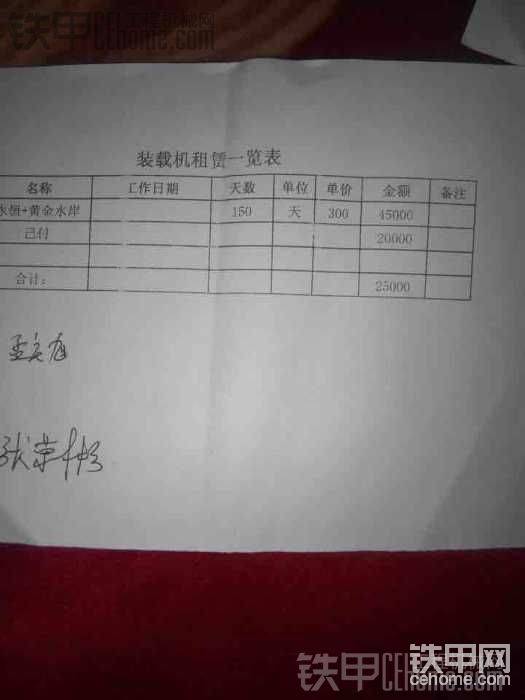 铁甲 工程机械网
CEhome.com
装载机租赁一览表
名称 工作日期 天数 单位 单价 金额 备注
恒+黄金水岸 150 天 300 45000
己付 20000
合计: 25000
铁甲 CEhome.com
铁甲网
cehome.com